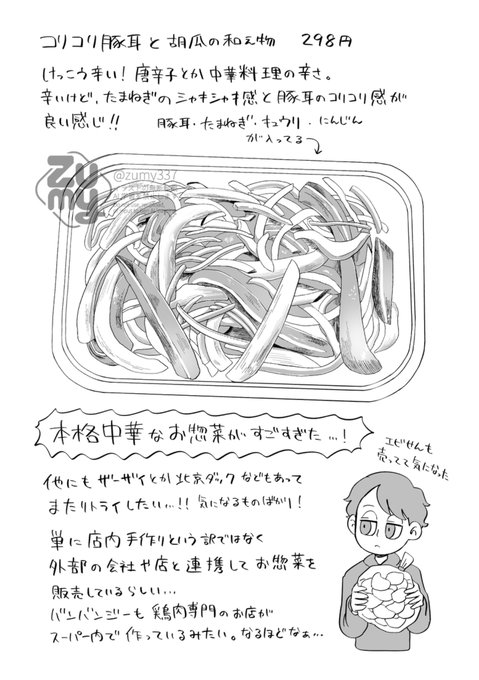 コリコリ豚耳と胡瓜の和え物 298円
けっこう辛い!唐辛子とか中華料理の辛さ。
辛いけど、たまねぎのシャキシャキ感と豚耳のコリコリ感が
良い感じ!!
豚耳・たまねぎ・キュウリ・にんじん
が入ってる
Zumy
@zumy337
本格中華なお惣菜がすごすぎた…!
エビせんも
売ってて気になった
他にもザーサイとか北京ダックなどもあって
またリトライしたい…!!気になるものばかり!
単に店内手作りという訳ではなく
外部の会社や店と連携してお惣菜を
販売しているらしい…
バンバンジーも鶏肉専門のお店が
スーパー内で作っているみたい。なるほどなぁ…